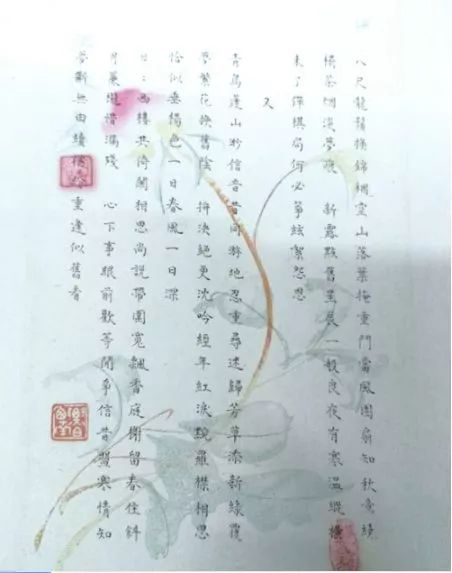 八尺龍鬚換錦裀空山落葉掩重門當風團扇知秋意繞
榻茶烟淺夢痕 新露點舊星辰一般良夜有寒溫縱橫
未了彈棋局何必箏絃絮怨恩
又
青鳥蓬山盼信音昔同游地忍重尋迷歸芳草添新綠覆
夢繁花換舊陰 拚決絕更沈吟經年紅淚浣羅襟相思
恰似垂楊色一日春風一日深
日:西樓共倚闌相思尚說帶圍寬飄香庭榭留春住斜
月簾櫳惜漏殘 心下事眼前歡等閒爭信昔盟寒情知
夢斷無由續重逢似舊看